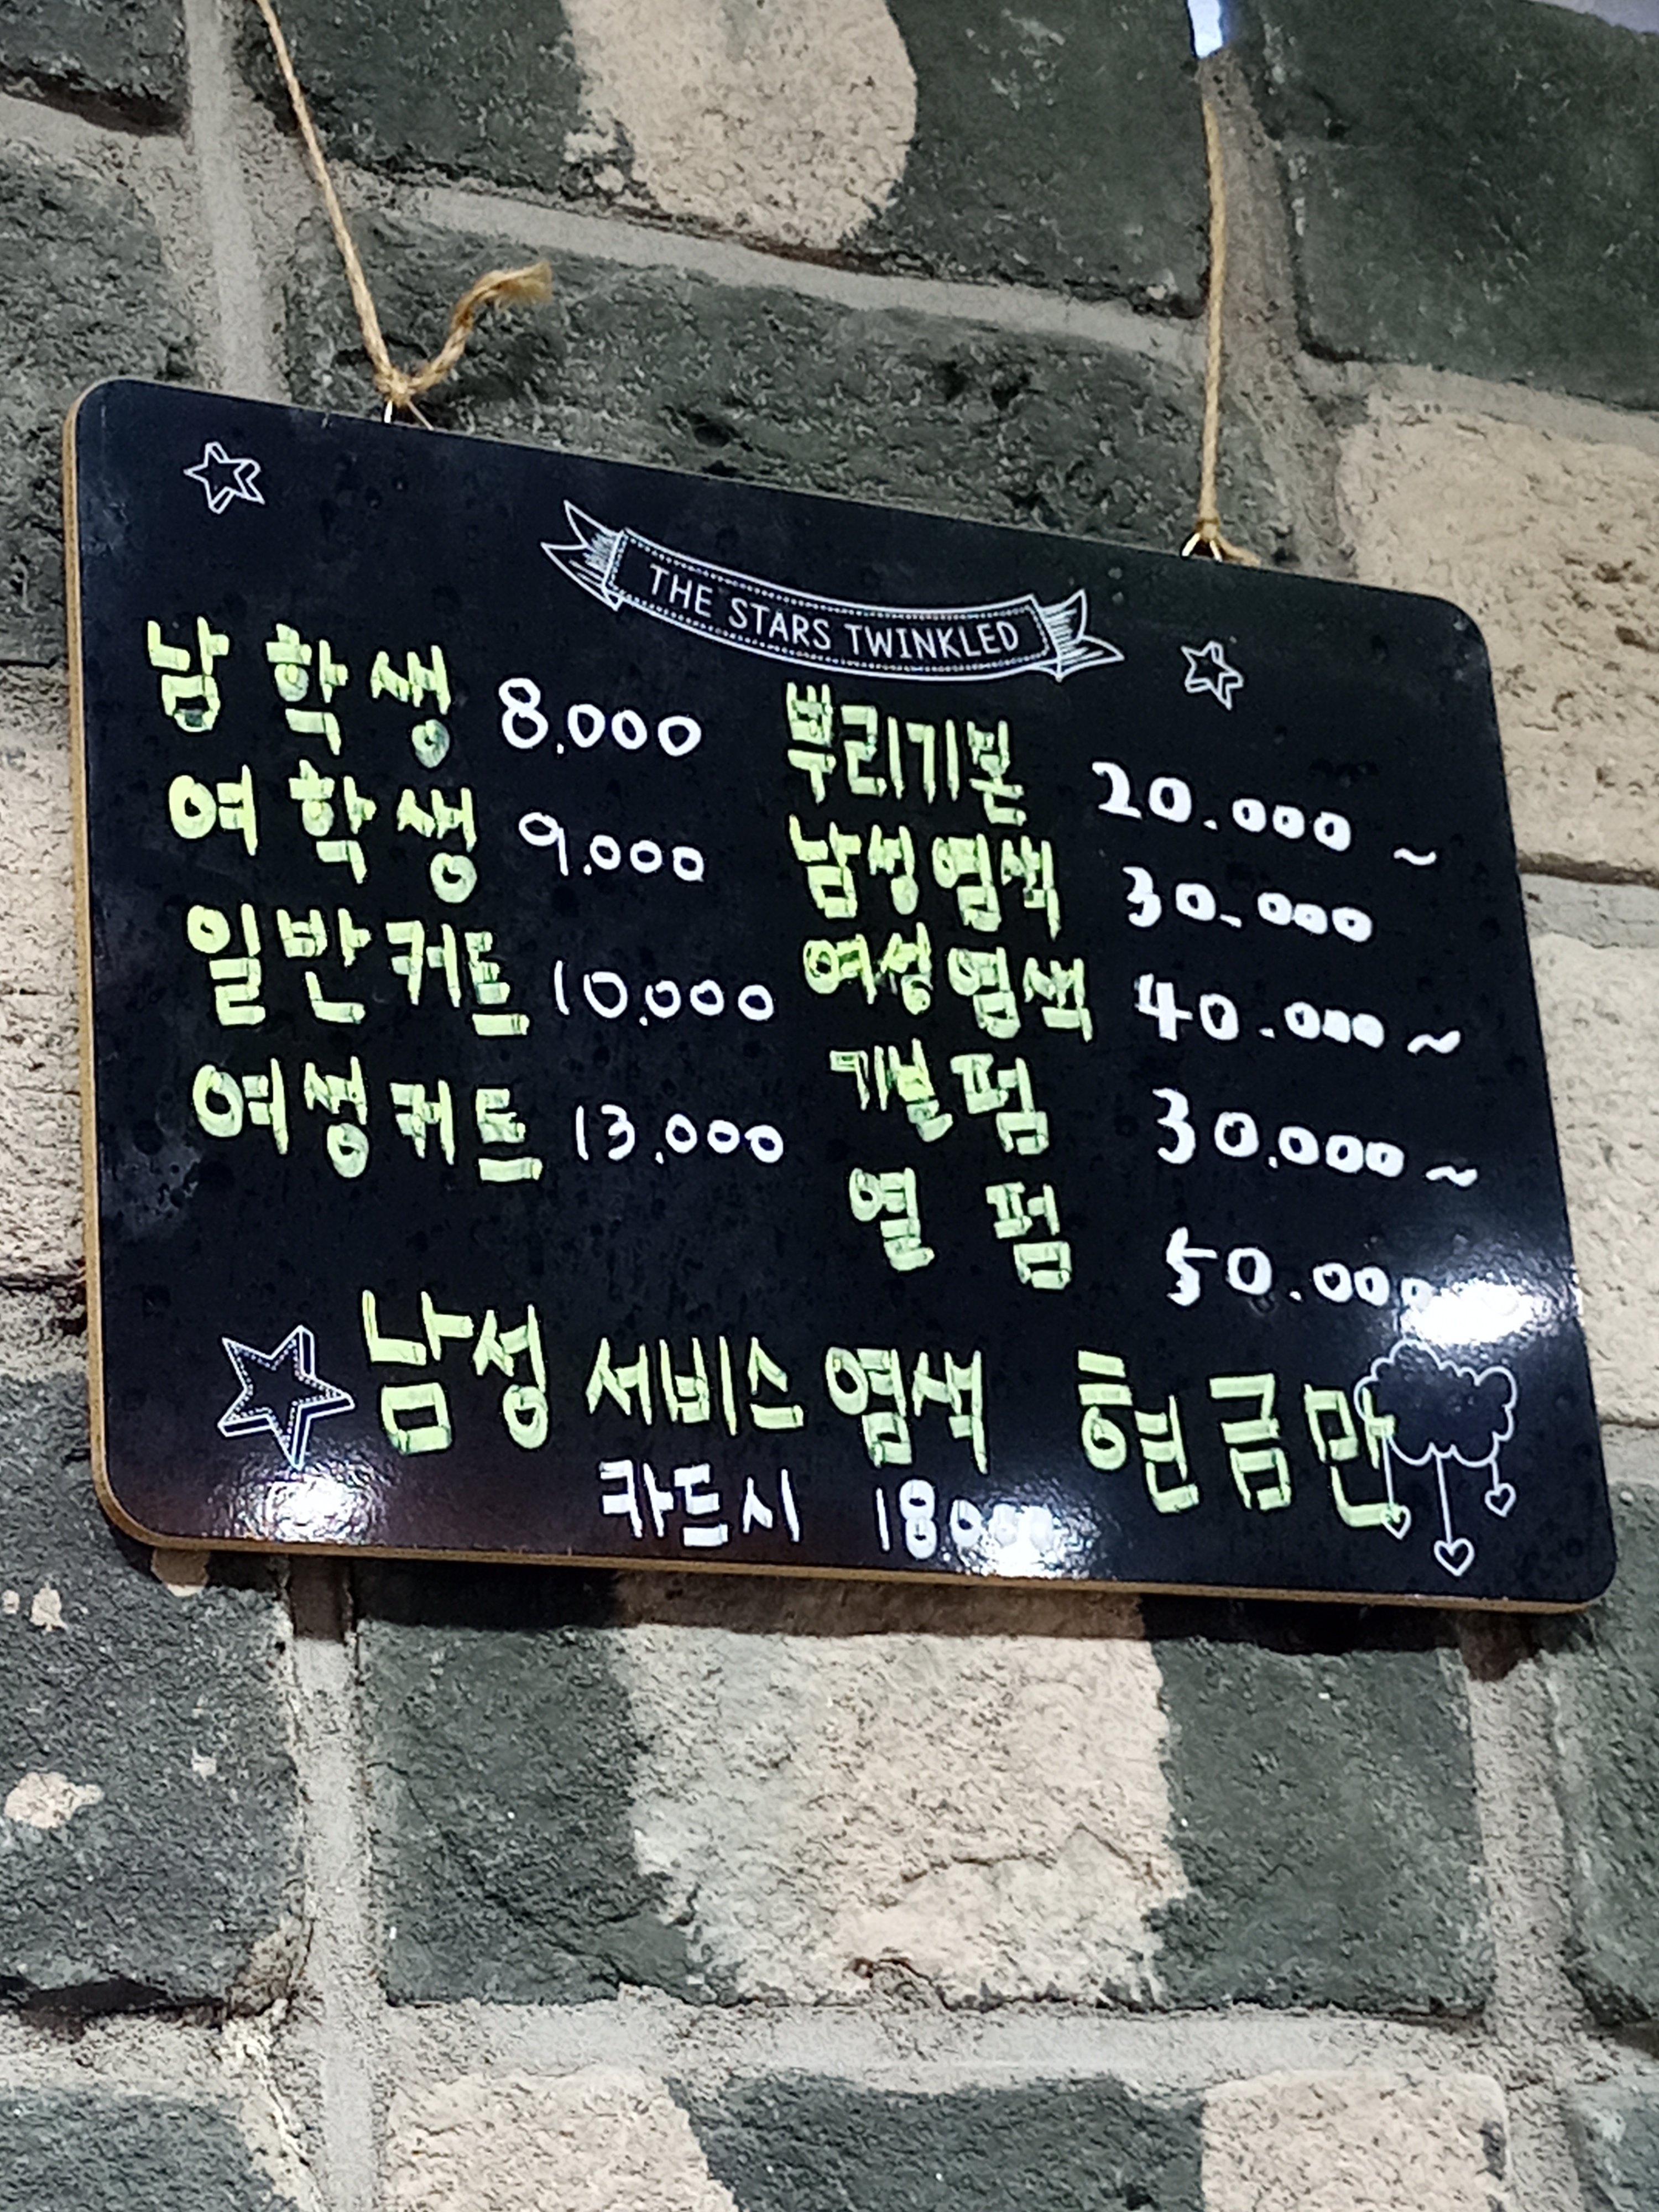 THE STARS TWINKLED
남학생 8.000
여학생 9.000
일반커트 10.000
여성커트 13.000
뿌리기본 20.000~
남성염색 30.000
여성염색 40.000~
기본펌 30.000~
열 펌 50.000
남성 서비스 염색 현금만
카드시 18000